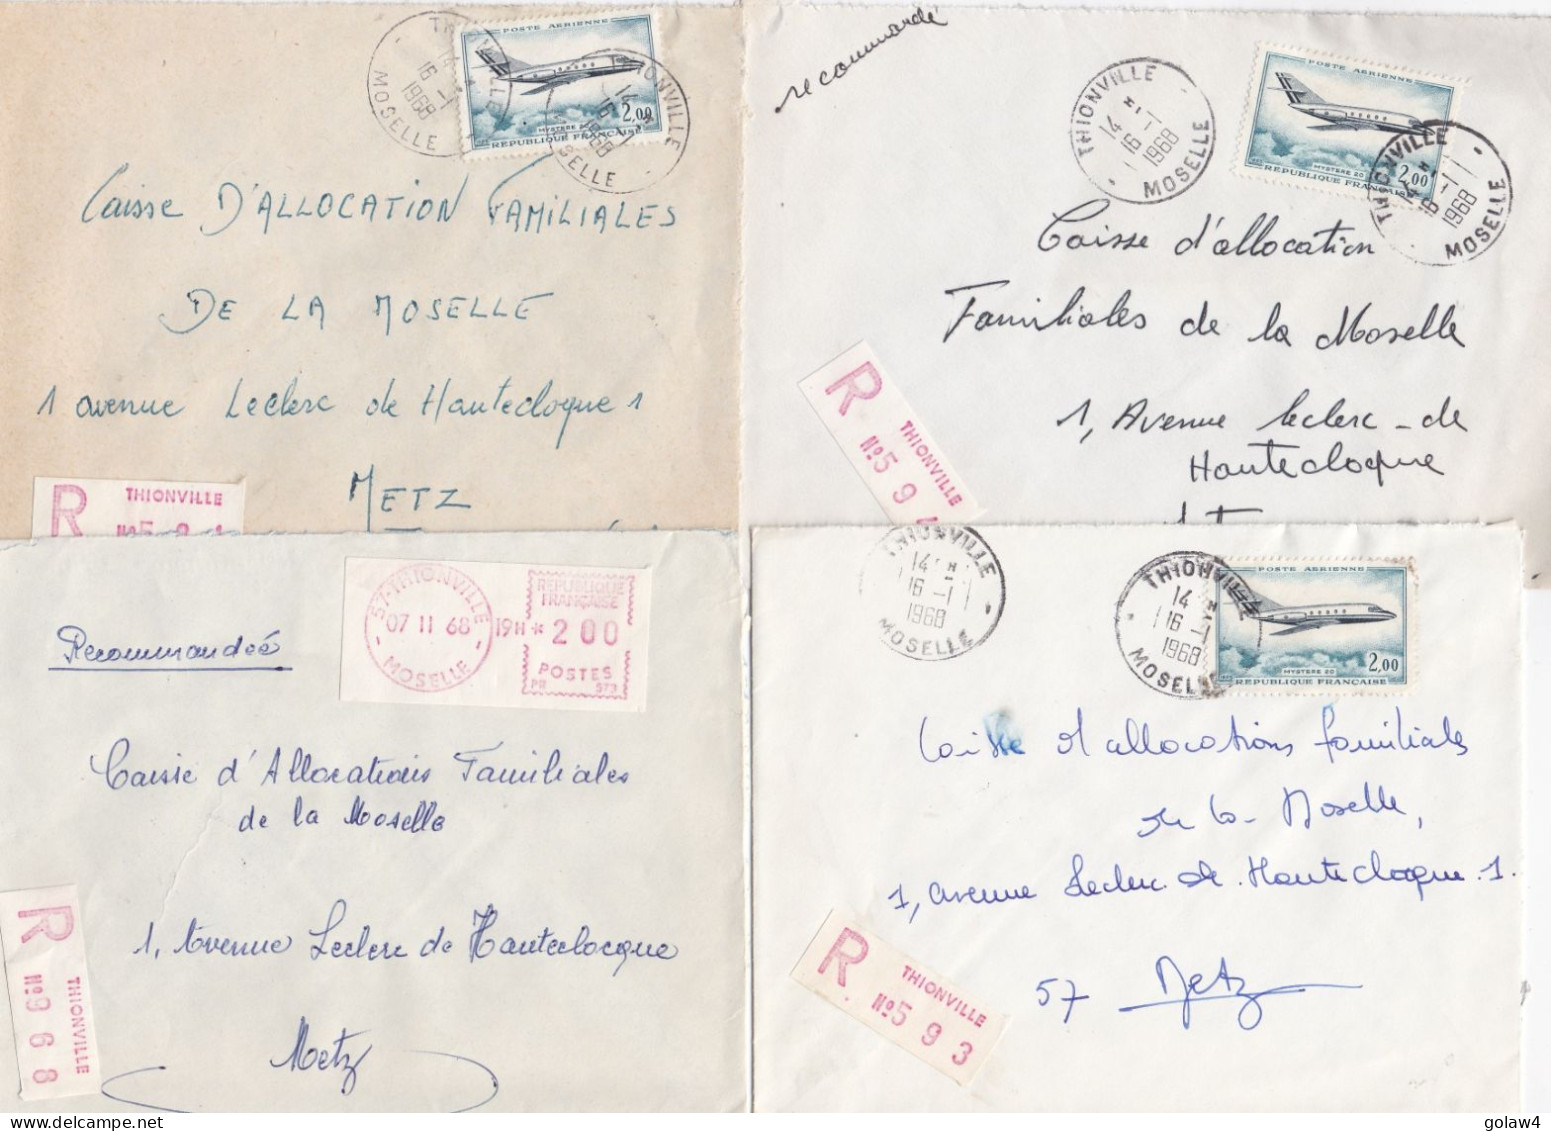 THIONVILLE
14 H
16 -1
1968
MOSELLE
POSTE AERIENNE
2,00
MYSTERE 20
REPUBLIQUE FRANÇAISE
THIONVILLE
14 H
16 -1
1968
MOSELLE
Caisse D'ALLOCATION FAMILIALES
DE LA MOSELLE
1 avenue Leclerc de Hautecloque 1
METZ
R
THIONVILLE
No 5 9 1
recommandé
THIONVILLE
14 H
16 -1
1968
MOSELLE
POSTE AERIENNE
MYSTERE 20
2,00
REPUBLIQUE FRANÇAISE
THIONVILLE
14 H
16 -1
1968
MOSELLE
Caisse d'allocation
Familiales de la Moselle
1, Avenue leclerc - de
Hautecloque
R
THIONVILLE
No 5 9
57-THIONVILLE
07 11 68
MOSELLE
19H * 200
REPUBLIQUE
FRANÇAISE
POSTES
PR 973
Recommandéé
Caisse d'Allocations Familiales
de la Moselle
1, Avenue Leclerc de Hauteclocque
Metz
R
THIONVILLE
No 9 6 8
THIONVILLE
14 H
16 -1
1968
MOSELLE
THIONVILLE
14 H
16 -1
1968
MOSELLE
POSTE AERIENNE
2,00
MYSTERE 20
REPUBLIQUE FRANÇAISE
Caisse d'allocations familiales
de la Moselle,
1, avenue Leclerc de Hautecloque 1.
57 Metz
R
THIONVILLE
No 5 9 3
golaw4